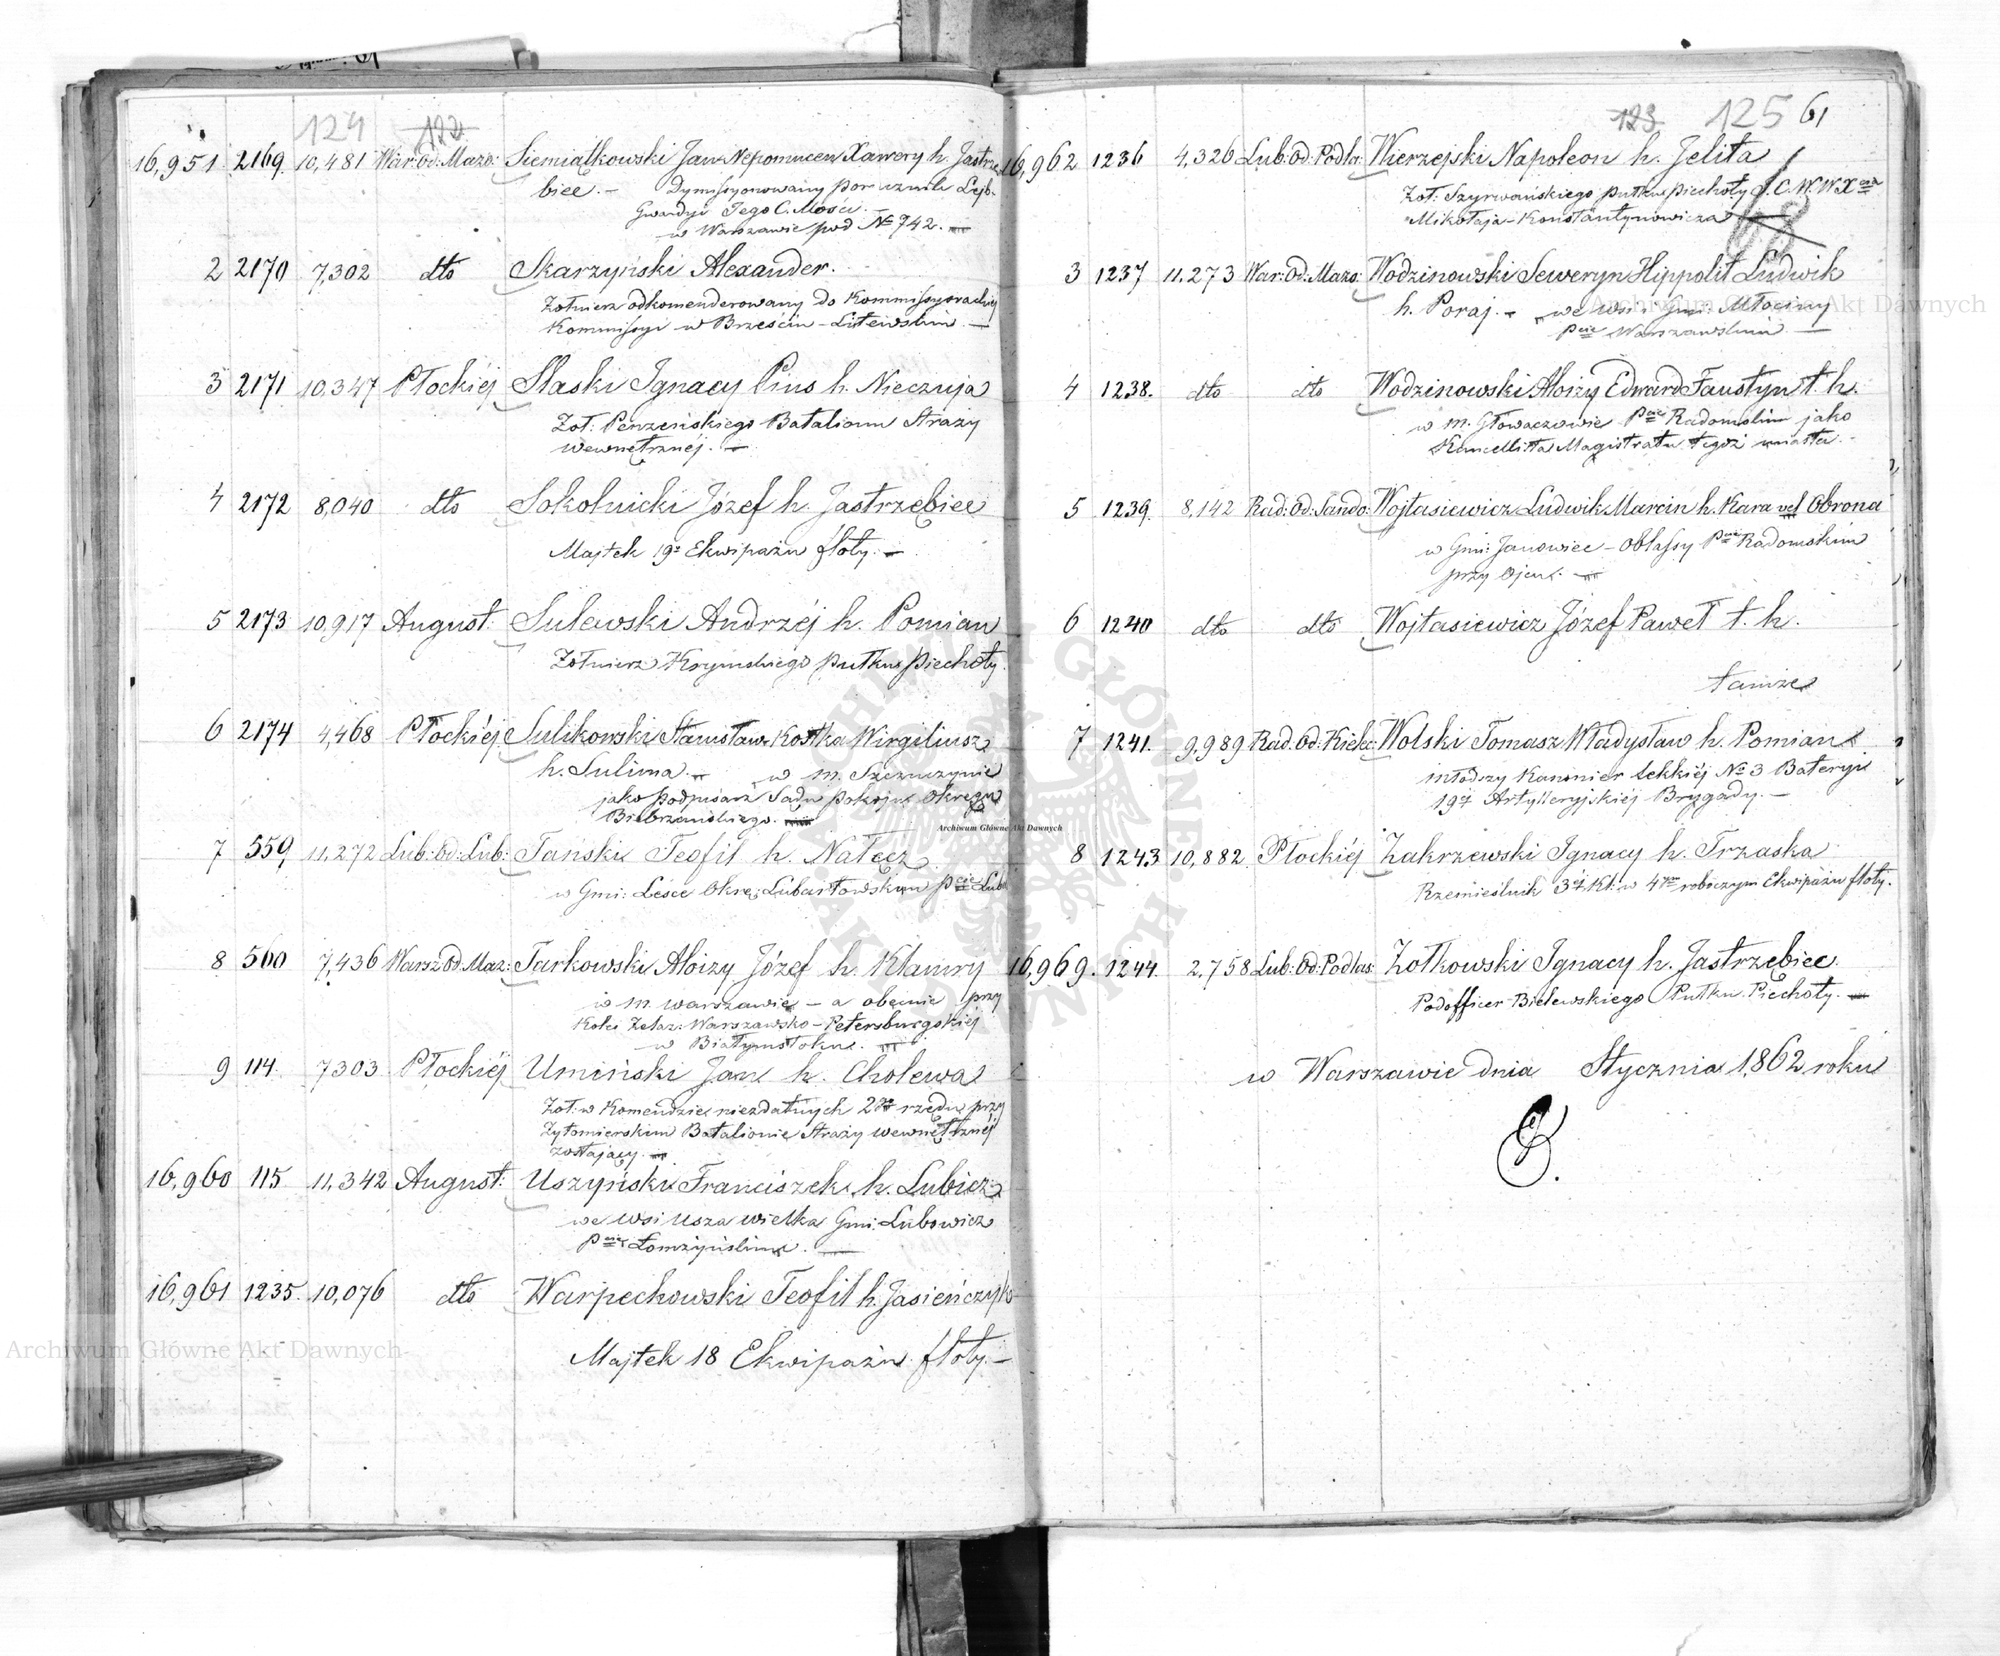 124 122
16,951 2169. 10,481 War: Od: Mazo: Siemiątkowski Jan Nepomucen Xawery h. Jastrzę-
biec. – Dymissyonowany Porucznik Lejb-
Gwardyi Jego C. Mości. –
w Warszawie pod No 742. –
2 2170 7,302 dto Skarzyński Alexander.
Żołnierz odkomenderowany do Kommissyorackiej
Kommissyi w Brześciu-Litewskim. –
3 2171 10,347 Płockiéj Slaski Ignacy Pius h. Nieczuja
Żoł: Penzeńskiego Batalionu Straży
wewnętrznéj. –
4 2172 8,040 dto Sokolnicki Józef h. Jastrzębiec
Majtek 19º Ekwipażu floty. –
5 2173 10,917 August: Sulewski Andrzéj h. Pomian
Żołnierz Krymskiego Pułku Piechoty.
6 2174 4,468 Płockiéj Sulikowski Stanisław Kostka Wirgiliusz
h. Sulima. – w m. Szczuczynie
jako Podpisarz Sądu Pokoju Okręgu
Biebrzańskiego. –
7 559 11,272 Lub: Od: Lub: Tański Teofil h. Nałęcz
w Gmi: Lesce Okrę: Lubartowskim Pcie Lub:
8 560 7,436 Warsz: Od: Maz: Tarkowski Aloizy Józef h. Klamry
w m. Warszawie – a obecnie przy
Kolei Żelaz: Warszawsko-Petersburgskiéj
w Białymstoku. –
9 114 7303 Płockiéj Umiński Jan h. Cholewa
Żoł: w Komendzie niezdatnych 2go rzędu przy
Żytomierskim Batalionie Straży wewnętrznéj
zostający. –
16,960 115 11,342 August: Uszyński Franciszek h. Lubicz
we wsi Usza wielka Gmi: Lubowicz
Pcie Łomżyńskim. –
16,961 1235. 10,076 dto Warpechowski Teofil h. Jasieńczyk
Majtek 18 Ekwipażu floty. –
123 125 61
16,962 1236 4,326 Lub: Od: Podla: Wierzejski Napoleon h. Jelita
Żoł: Szyrwańskiego Pułku Piechoty J. C. W. W Xcia
Mikołaja-Konstantynowicza
68
3 1237 11,273 War: Od: Mazo: Wodzinowski Seweryn Hippolit Ludwik
h. Poraj. – we wsi i Gmi: Młociny
Pcie Warszawskim –
4 1238. dto dto Wodzinowski Aloizy Edward Faustyn t. h.
w m. Głowaczowie Pcie Radomskim jako
Kancellista Magistratu tegoż miasta. –
5 1239. 8,142 Rad: Od: Sando: Wojtasiewicz Ludwik Marcin h. Kara vel Obrona
w Gmi: Janowiec – Oblassy Pcie Radomskim
przy Ojcu. –
6 1240 dto dto Wojtasiewicz Józef Paweł t. h.
tamże
7 1241. 9,989 Rad: Od: Kielec: Wolski Tomasz Władysław h. Pomian
młodszy Kanonier lekkiéj No 3 Bateryi
19éj Artylleryjskiéj Brygady. –
8 1243 10,882 Płockiéj Zakrzewski Ignacy h. Trzaska
Rzemieślnik 3éj Kl: w 4ym roboczym Ekwipażu floty.
16,969. 1244. 2,758 Lub: Od: Podlas: Żołkowski Ignacy h. Jastrzębiec.
Podofficer Bielewskiego Pułku Piechoty. –
w Warszawie dnia Stycznia 1862 roku
Archiwum Główne Akt Dawnych
Archiwum Główne Akt Dawnych
Archiwum Główne Akt Dawnych
ARCHIWUM GŁÓWNE AKT DAWNYCH